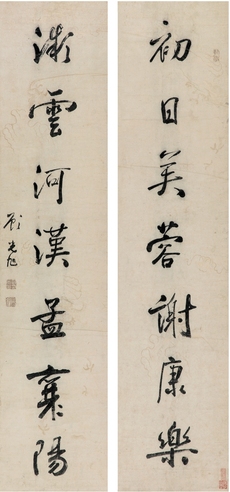 初日芙蓉謝康樂
微雲河漢孟襄陽
顧光旭